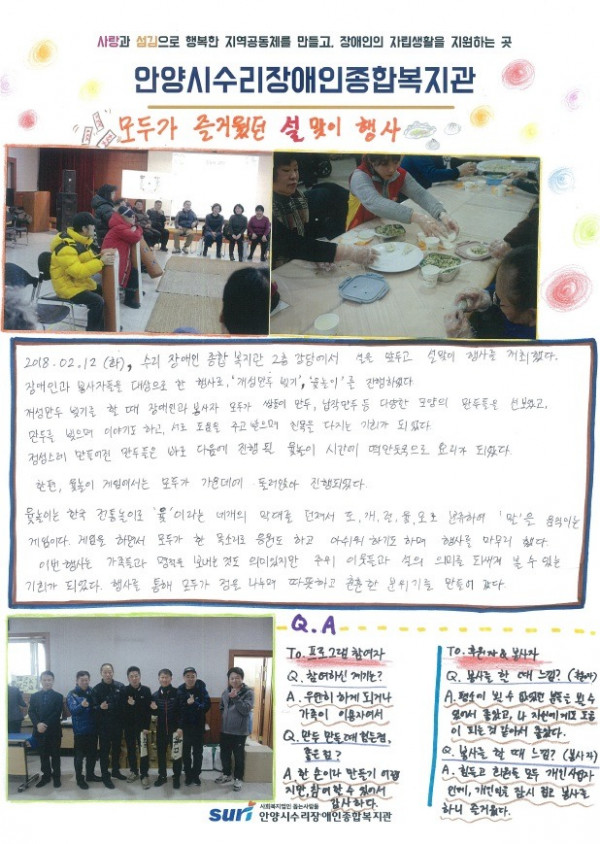 사랑과 섬김으로 행복한 지역공동체를 만들고, 장애인의 자립생활을 지원하는 곳
안양시수리장애인종합복지관
모두가 즐거웠던 설 맞이 행사
2018.02.12 (화), 수리 장애인 종합 복지관 2층 강당에서 설을 앞두고 설맞이 행사를 개최했다.
장애인과 봉사자들을 대상으로 한 행사로, '개성만두 빚기', '윷놀이'를 진행하였다
개성만두 빚기를 할 때 장애인과 봉사자 모두가 만두, 납작만두 등 다양한 모양의 만두들을 선보였고,
만두를 빚으며 이야기도 하고, 서로 도움을 주고 받으며 친목을 다지는 기회가 되었다.
정성스레 만들어진 만두들은 바로 다음에 진행 된 윷놀이 시간이 떡만둣국으로 요리가 되었다.
한편, 윷놀이 게임에서는 모두가 가운데에 둘러앉아 진행되었다.
윷놀이는 한국 전통놀이로 '윷'이라는 네개의 막대를 던져서 도, 개, 걸, 윷, 모로 분류하여 '말'을 움직이는
게임이다. 게임을 하면서 모두가 한 목소리로 응원도 하고 아쉬워 하기도 하며 행사를 마무리 했다.
이번 행사는 가족들과 명절을 보내는 것도 의미있지만 주위 이웃들과 설의 의미를 되새겨 볼 수 있는
기회가 되었다. 행사를 통해 모두가 정을 나누며 따뜻하고 훈훈한 분위기를 만들어 갔다.
Q.A
To. 프로그램 참여자
Q. 참여하신 계기는?
A. 우연히 하게 되거나
가족이 이용자여서
Q. 만두 만들 때 힘든점,
좋은점?
A. 한 손이라 만들기 어렵
지만, 참여 할 수 있어서
감사하다.
To. 후원자 & 봉사자
Q. 봉사를 할 때 느낌?
A. 평소에 뵐 수 없었던 분들을 뵐 수
있어서 좋았고, 나 자신에게도 도움
이 되는 것 같아서 좋았다.
Q. 봉사를 할 때 느낌? (봉사자)
A. 힘들고 모두 개인사업자
인데, 개인일을 잠시 접고 봉사를
하니 즐거웠다.
suri 사회복지법인 돕는사람들
안양시수리장애인종합복지관